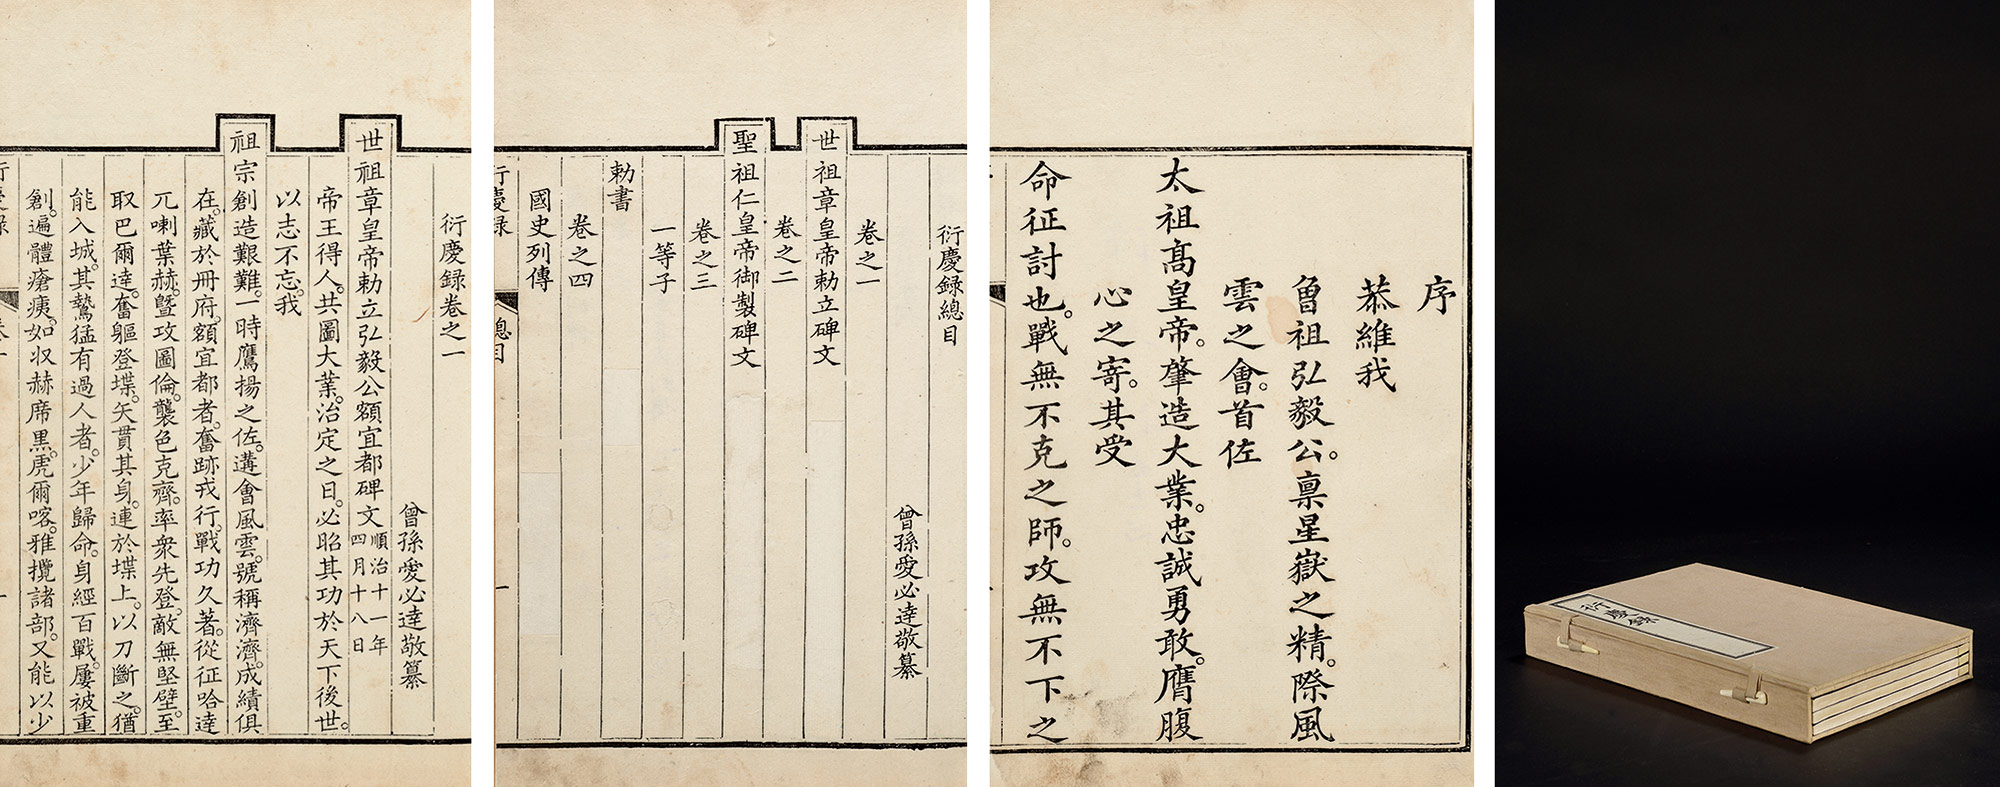 衍慶録
序
恭維我
曾祖弘毅公。稟星嶽之精。際風
雲之會。首佐
太祖高皇帝。肇造大業。忠誠勇敢。膺腹
心之寄。其受
命征討也。戰無不克之師。攻無不下之
衍慶録總目
曾孫愛必達敬纂
卷之一
世祖章皇帝勅立碑文
卷之二
聖祖仁皇帝御製碑文
卷之三
一等子
勅書
卷之四
國史列傳
總目
一
衍慶録卷之一
曾孫愛必達敬纂
世祖章皇帝勅立弘毅公額宜都碑文順治十一年四月十八日
帝王得人。共圖大業。治定之日。必昭其功於天下後世。
以志不忘。我
祖宗創造艱難。一時鷹揚之佐。遘會風雲。號稱濟濟。成績俱
在。藏於冊府。額宜都者。奮跡戎行。戰功久著。從征哈達
兀喇葉赫。暨攻圖倫。襲色克齊。率衆先登。敵無堅壁。至
取巴爾達。奮軀登堞。矢貫其身。連於堞上。以刀斷之。猶
能入城。其驇猛有過人者。少年歸命。身經百戰。屢被重
創。遍體瘡痍。如収赫席黑。虎爾喀。雅攬諸部。又能以少